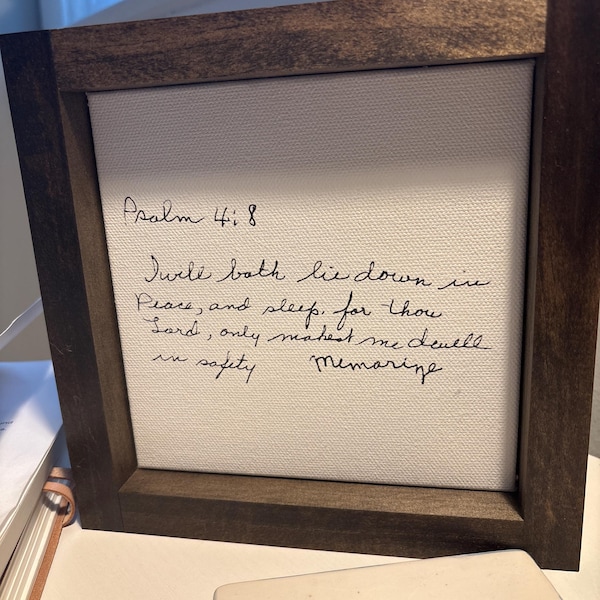 Psalm 4:8
I will both lie down in
Peace, and sleep. for thou
Lord, only makest me dwell
in safety Memorize